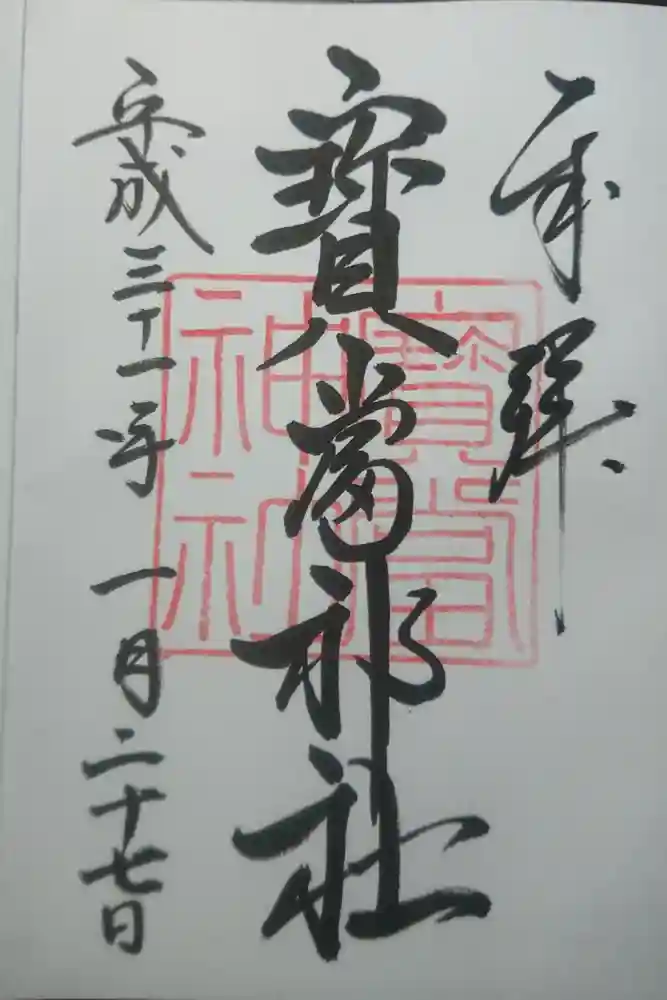 奉拝
寶當神社
平成三十一年一月二十七日
寶當
神社